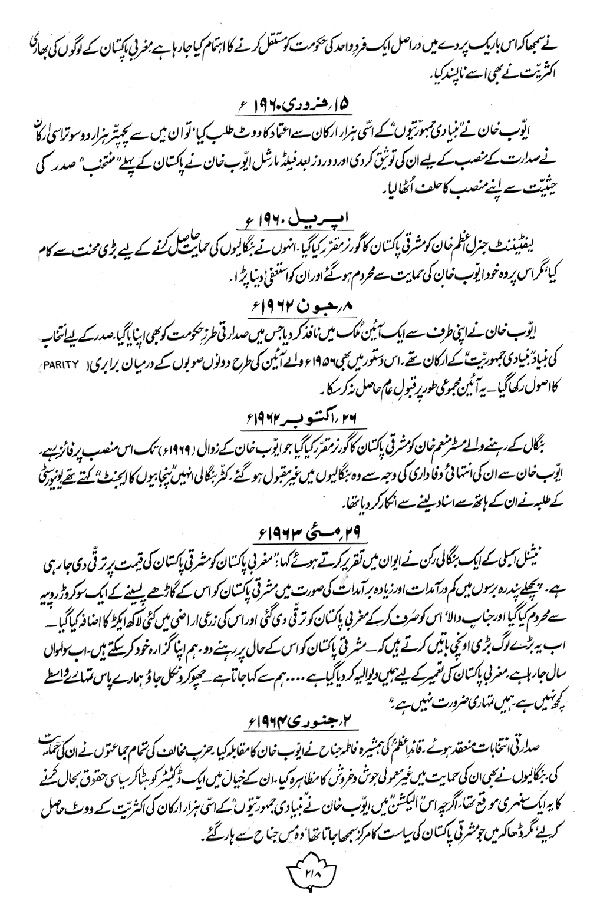 نے سمجھا کہ اس باریک پردے میں دراصل ایک فرد واحد کی حکومت کو مستقل کرنے کا اہتمام کیا جا رہا ہے مغربی پاکستان کے لوگوں کی بھاری
اکثریت نے بھی اُسے ناپسند کیا۔
۱۵ر فروری ۱۹۶۰ء
ایوب خان نے "بنیادی جمہوریتوں" کے اسّی ہزار ارکان سے اعتماد کا ووٹ طلب کیا' تو ان میں سے پچھتر ہزار دو سو تراسی ارکان
نے صدارت کے منصب کے لیے ان کی توثیق کردی اور دو روز بعد فیلڈ مارشل ایوب خان نے پاکستان کے پہلے "منتخب" صدر کی
حیثیت سے اپنے منصب کا حلف اُٹھا لیا۔
اپریل ۱۹۶۰ء
لیفٹیننٹ جنرل اعظم خان کو مشرقی پاکستان کا گورنر مقرر کیا گیا۔ انہوں نے بنگالیوں کی حمایت حاصل کرنے کے لیے بڑی محنت سے کام
کیا' مگر اس پر وہ خود ایوب خان کی حمایت سے محروم ہوگئے اور ان کو استعفیٰ دینا پڑا۔
۸ر جون ۱۹۶۲ء
ایوب خان نے اپنی طرف سے ایک آئین ملک میں نافذ کر دیا جس میں صدارتی طرز حکومت کو بھی اپنایا گیا۔ صدر کے لیے انتخاب
کی بنیاد "بنیادی جمہوریت" کے ارکان تھے۔ اس دستور میں بھی ۱۹۵۶ء والے آئین کی طرح دونوں صوبوں کے درمیان برابری (PARITY)
کا اصول رکھا گیا۔ یہ آئین مجموعی طور پر قبول عام حاصل نہ کرسکا۔
۲۶ر اکتوبر ۱۹۶۲ء
بنگال کے رہنے والے مسٹر منعم خان کو مشرقی پاکستان کا گورنر مقرر کیا گیا جو ایوب خان کے زوال (۱۹۶۹ء) تک اس منصب پر فائز رہے۔
ایوب خان سے ان کی انتہائی وفاداری کی وجہ سے وہ بنگالیوں میں غیر مقبول ہوگئے۔ کٹر بنگالی انہیں "پنجابیوں کا ایجنٹ" کہتے تھے یونیورسٹی
کے طلبہ نے ان کے ہاتھ سے اسناد لینے سے انکار کر دیا تھا۔
۲۹ر مئی ۱۹۶۳ء
نیشنل اسمبلی کے ایک بنگالی رکن نے ایوان میں تقریر کرتے ہوئے کہا: "مغربی پاکستان کو مشرقی پاکستان کی قیمت پر ترقی دی جا رہی
ہے۔ پچھلے پندرہ برسوں میں کم درآمدات اور زیادہ برآمدات کی صورت میں مشرقی پاکستان کو اس کے گاڑھے پسینے کے ایک سو کروڑ روپیہ
سے محروم کیا گیا اور جناب والا' اس کو صرف کرکے مغربی پاکستان کو ترقی دی گئی اور اس کی زرعی اراضی میں کئی لاکھ ایکڑ کا اضافہ کیا گیا۔
اب یہ بڑے لوگ بڑی اونچی باتیں کرتے ہیں کہ — مشرقی پاکستان کو اس کے حال پر رہنے دو۔ ہم اپنا گزارہ خود کرسکتے ہیں۔ اب سولہواں
سال جا رہا ہے، مغربی پاکستان کی تعمیر کے لیے ہمیں دیوالیہ کر دیا گیا ہے .... ہم سے کہا جاتا ہے — چھوکرو نکل جاؤ، ہمارے پاس تمہارے واسطے
کچھ نہیں ہے۔ ہمیں تمہاری ضرورت نہیں ہے"
۲ر جنوری ۱۹۶۴ء
صدارتی انتخابات منعقد ہوئے۔ قائد اعظم کی ہمشیرہ فاطمہ جناح نے ایوب خان کا مقابلہ کیا۔ حزب مخالف کی تمام جماعتوں نے ان کی حمایت
کی بنگالیوں نے بھی ان کی حمایت میں غیر معمولی جوش و خروش کا مظاہرہ کیا۔ ان کے خیال میں ایک ڈکٹیٹر کو ہٹا کر سیاسی حقوق بحال کرنے
کا یہ ایک سنہری موقع تھا، اگرچہ اس "الیکشن" میں ایوب خان نے "بنیادی جمہوریتوں" کے اسّی ہزار ارکان کی اکثریت کے ووٹ حاصل
کرلیے' مگر ڈھاکہ میں جو مشرقی پاکستان کی سیاست کا مرکز سمجھا جاتا تھا' وہ مس جناح سے ہار گئے۔
۲۱۸